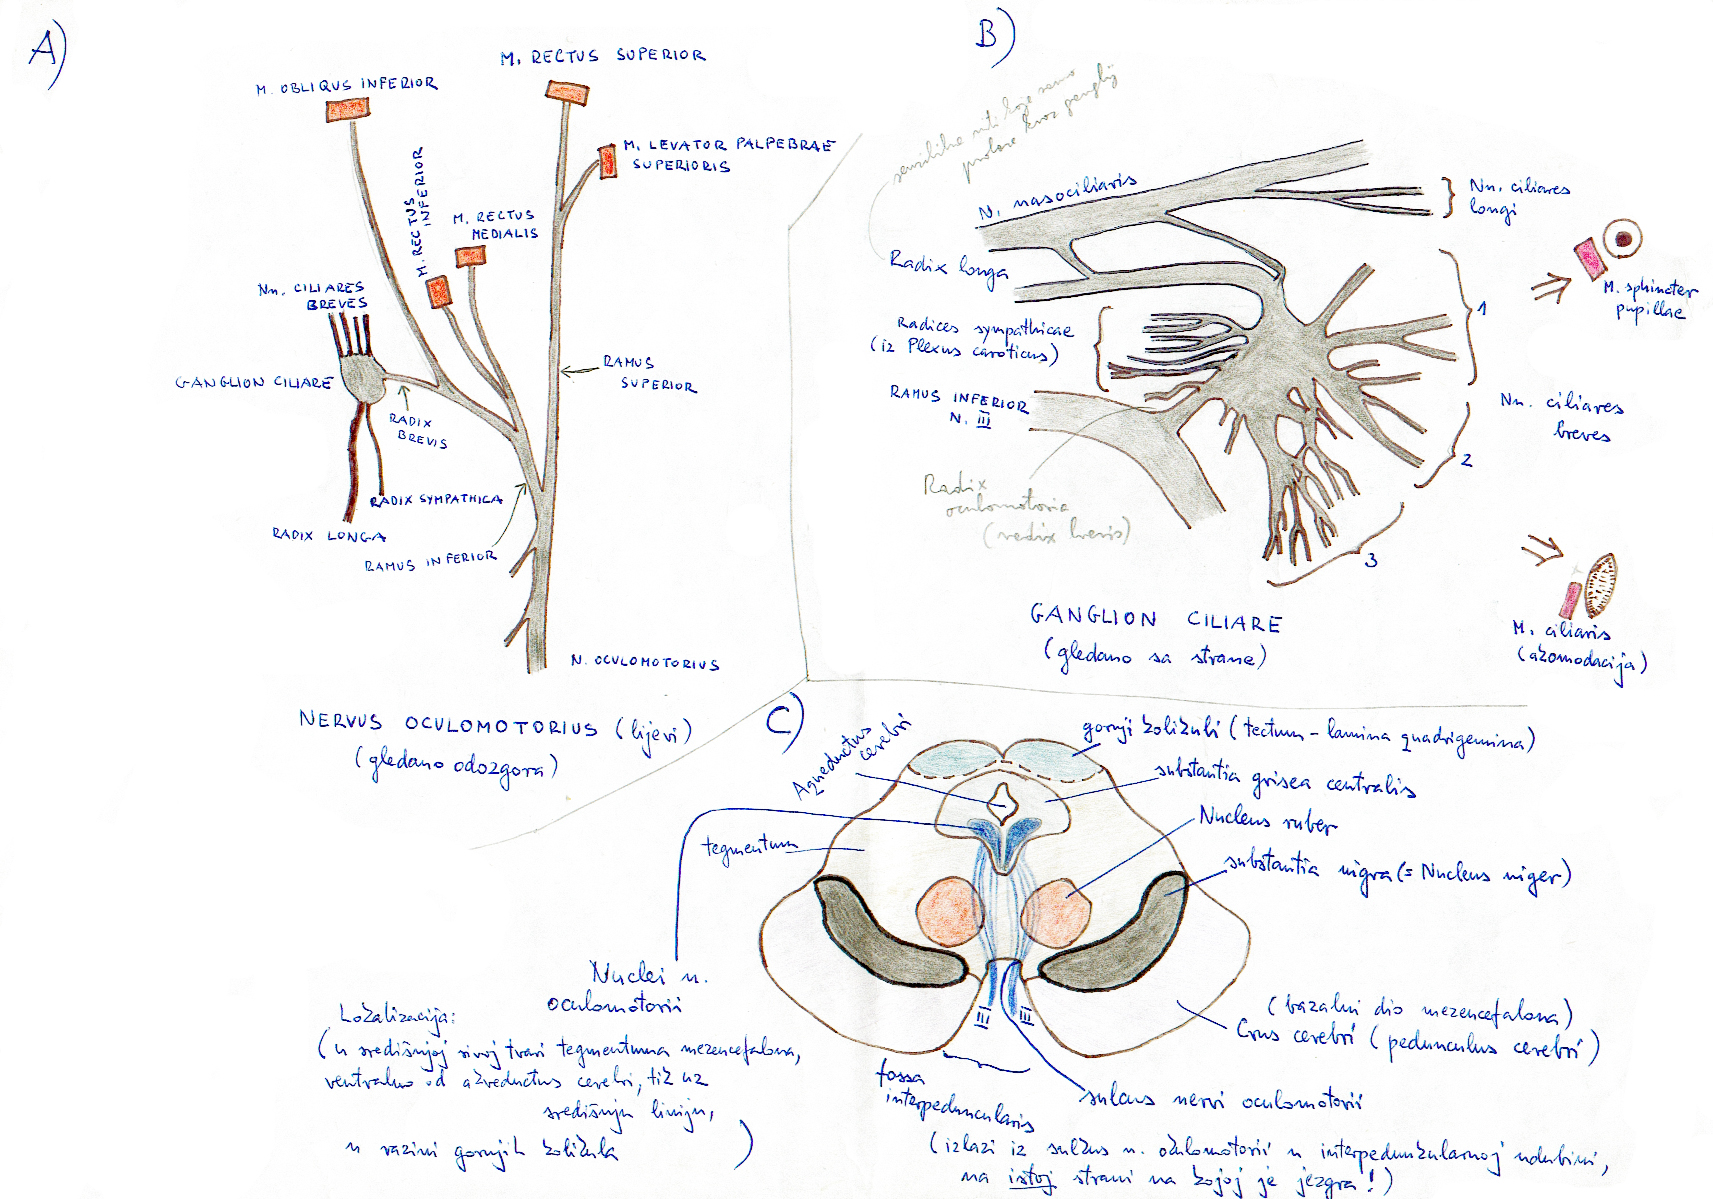 A)
M. RECTUS SUPERIOR
M. OBLIQUS INFERIOR
M. LEVATOR PALPEBRAE
SUPERIORIS
M. RECTUS
INFERIOR
M. RECTUS
MEDIALIS
Nn. CILIARES
BREVES
GANGLION CILIARE
RAMUS
SUPERIOR
RADIX
BREVIS
RADIX SYMPATHICA
RADIX LONGA
RAMUS INFERIOR
N. OCULOMOTORIUS
NERVUS OCULOMOTORIUS (lijevi)
(gledano odozgora)
B)
senzibilne niti koje samo
prolaze kroz ganglij
N. nasociliaris
Nn. ciliares
longi
Radix longa
M. sphincter
pupillae
1
Radices sympathicae
(iz Plexus caroticus)
RAMUS INFERIOR
N. III
Nn. ciliares
breves
2
Radix
oculomotoria
(radix brevis)
3
GANGLION CILIARE
(gledano sa strane)
M. ciliaris
(akomodacija)
C)
Aqueductus
cerebri
gornji kolikuli (tectum - lamina quadrigemina)
substantia grisea centralis
Nucleus ruber
tegmentum
substantia nigra (= Nucleus niger)
Nuclei n.
oculomotorii
Lokalizacija:
(u središnjoj sivoj tvari tegmentuma mezencefalona,
ventralno od akveductus cerebri, tik uz
središnju liniju,
u razini gornjih kolikula )
III III
(bazalni dio mezencefalona)
Crus cerebri (pedunculus cerebri)
fossa
interpeduncularis
sulcus nervi oculomotorii
(izlazi iz sulkus n. okulomotorii u interpedunkularnoj udubini,
na istoj strani na kojoj je jezgra!)